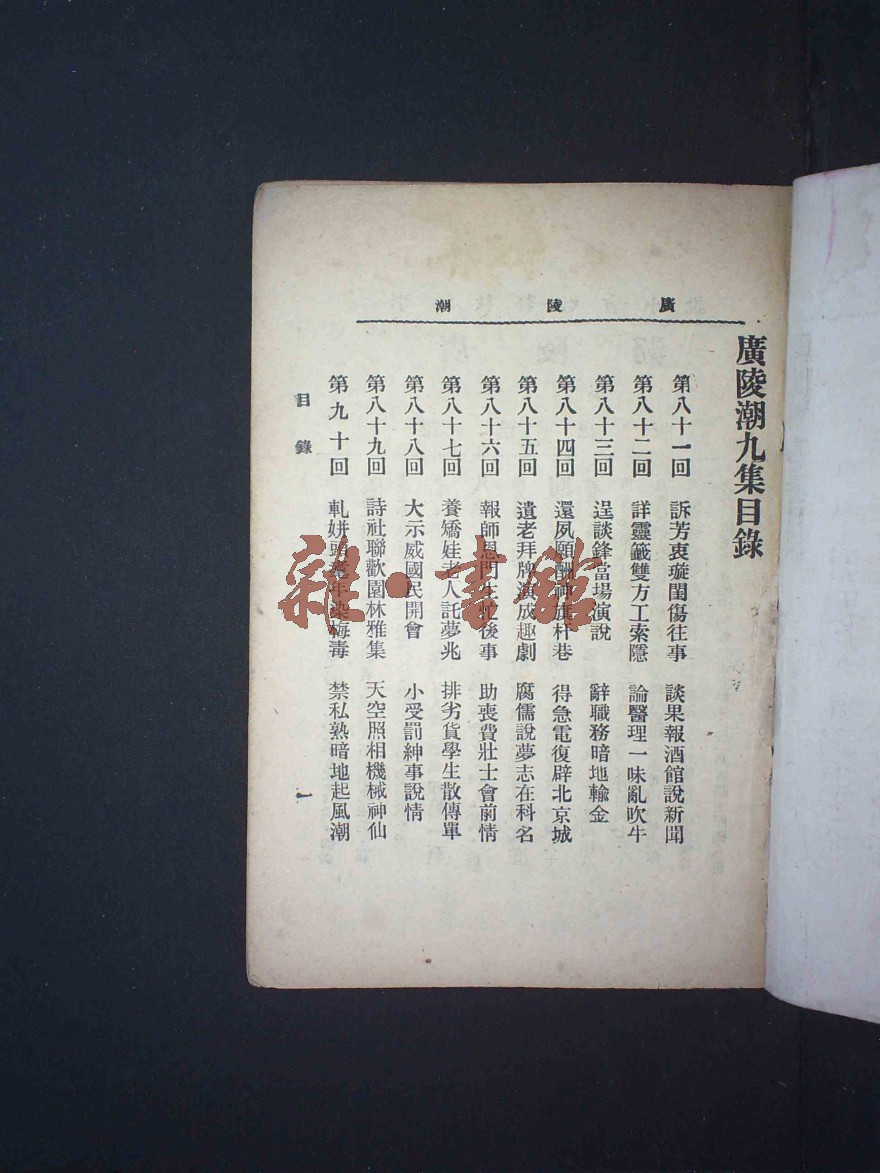 廣陵潮
廣陵潮九集目錄
第八十一回 訴芳衷璇閨傷往事 談果報酒館說新聞
第八十二回 詳靈籤雙方工索隱 論醫理一味亂吹牛
第八十三回 逞談鋒當場演說 辭職務暗地輸金
第八十四回 還夙願酬神旗杆巷 得急電復辟北京城
第八十五回 遺老拜牌演成趣劇 腐儒說夢志在科名
第八十六回 報師恩門生忙後事 助喪費壯士會前情
第八十七回 養矯娃老人託夢兆 排劣貨學生散傳單
第八十八回 大示威國民開會 小受罰紳事說情
第八十九回 詩社聯歡園林雅集 天空照相機械神仙
第九十回 軋姘頭耄年染梅毒 禁私熟暗地起風潮
目錄
一
雜·書館